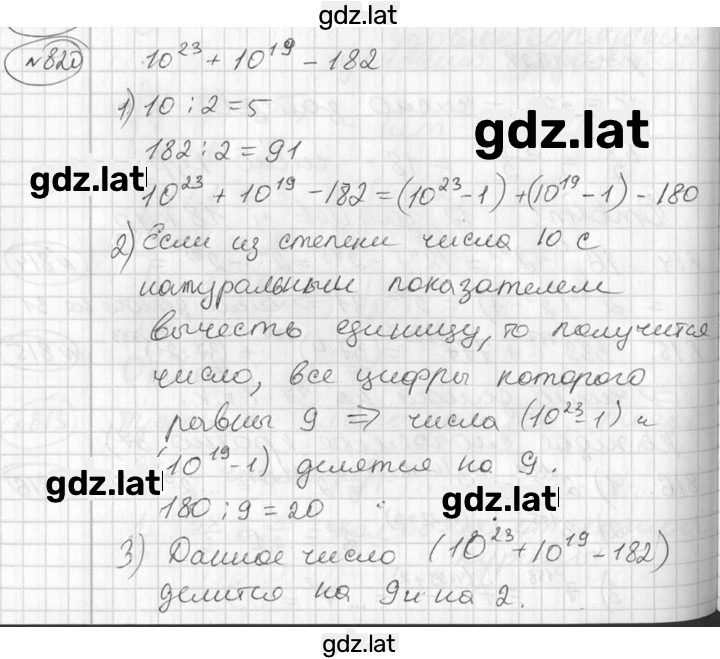 gdz.lat
№820 10²³ + 10¹⁹ - 182
1) 10 : 2 = 5
gdz.lat
182 : 2 = 91
gdz.lat
10²³ + 10¹⁹ - 182 = (10²³ - 1) + (10¹⁹ - 1) - 180
2) Если из степени числа 10 с
натуральным показателем
вычесть единицу, то получится
число, все цифры которого
равны 9 ⇒ числа (10²³ - 1) и
(10¹⁹ - 1) делятся на 9.
gdz.lat
180 : 9 = 20
gdz.lat
3) Данное число (10²³ + 10¹⁹ - 182)
делится на 9 и на 2.
gdz.lat